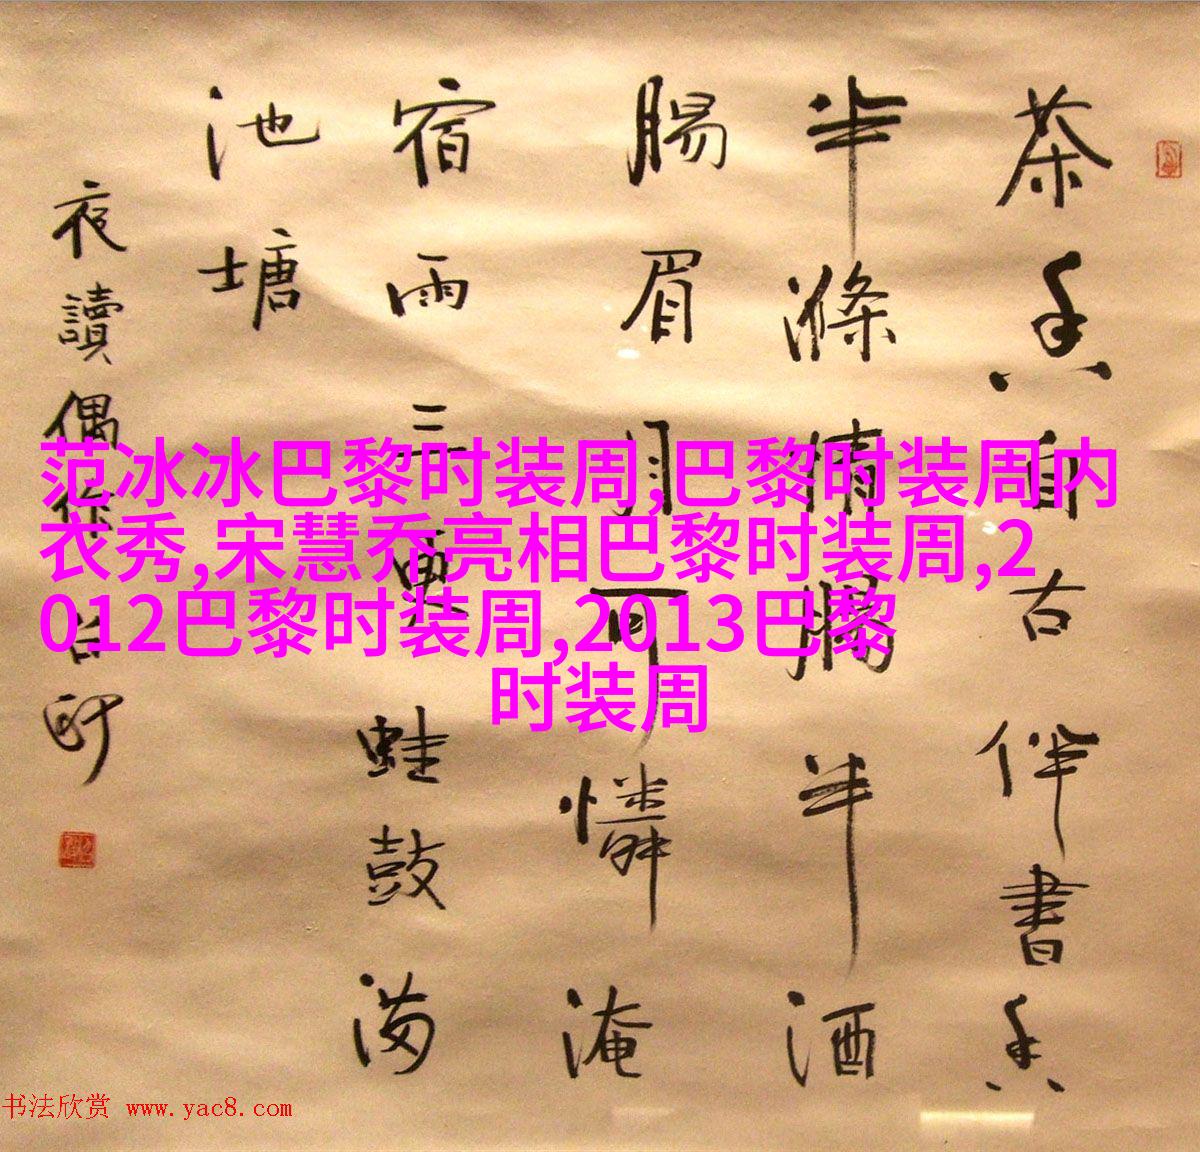 茶香自古伴書香
半滌情腸半酒
腸眉月可憐淹
宿雨三更蛙鼓滿
池塘
夜讀偶作
范冰冰巴黎时装周,巴黎时装周内
衣秀,宋慧乔亮相巴黎时装周,2
012巴黎时装周,2013巴黎
时装周
书法欣赏 www.yac8.com